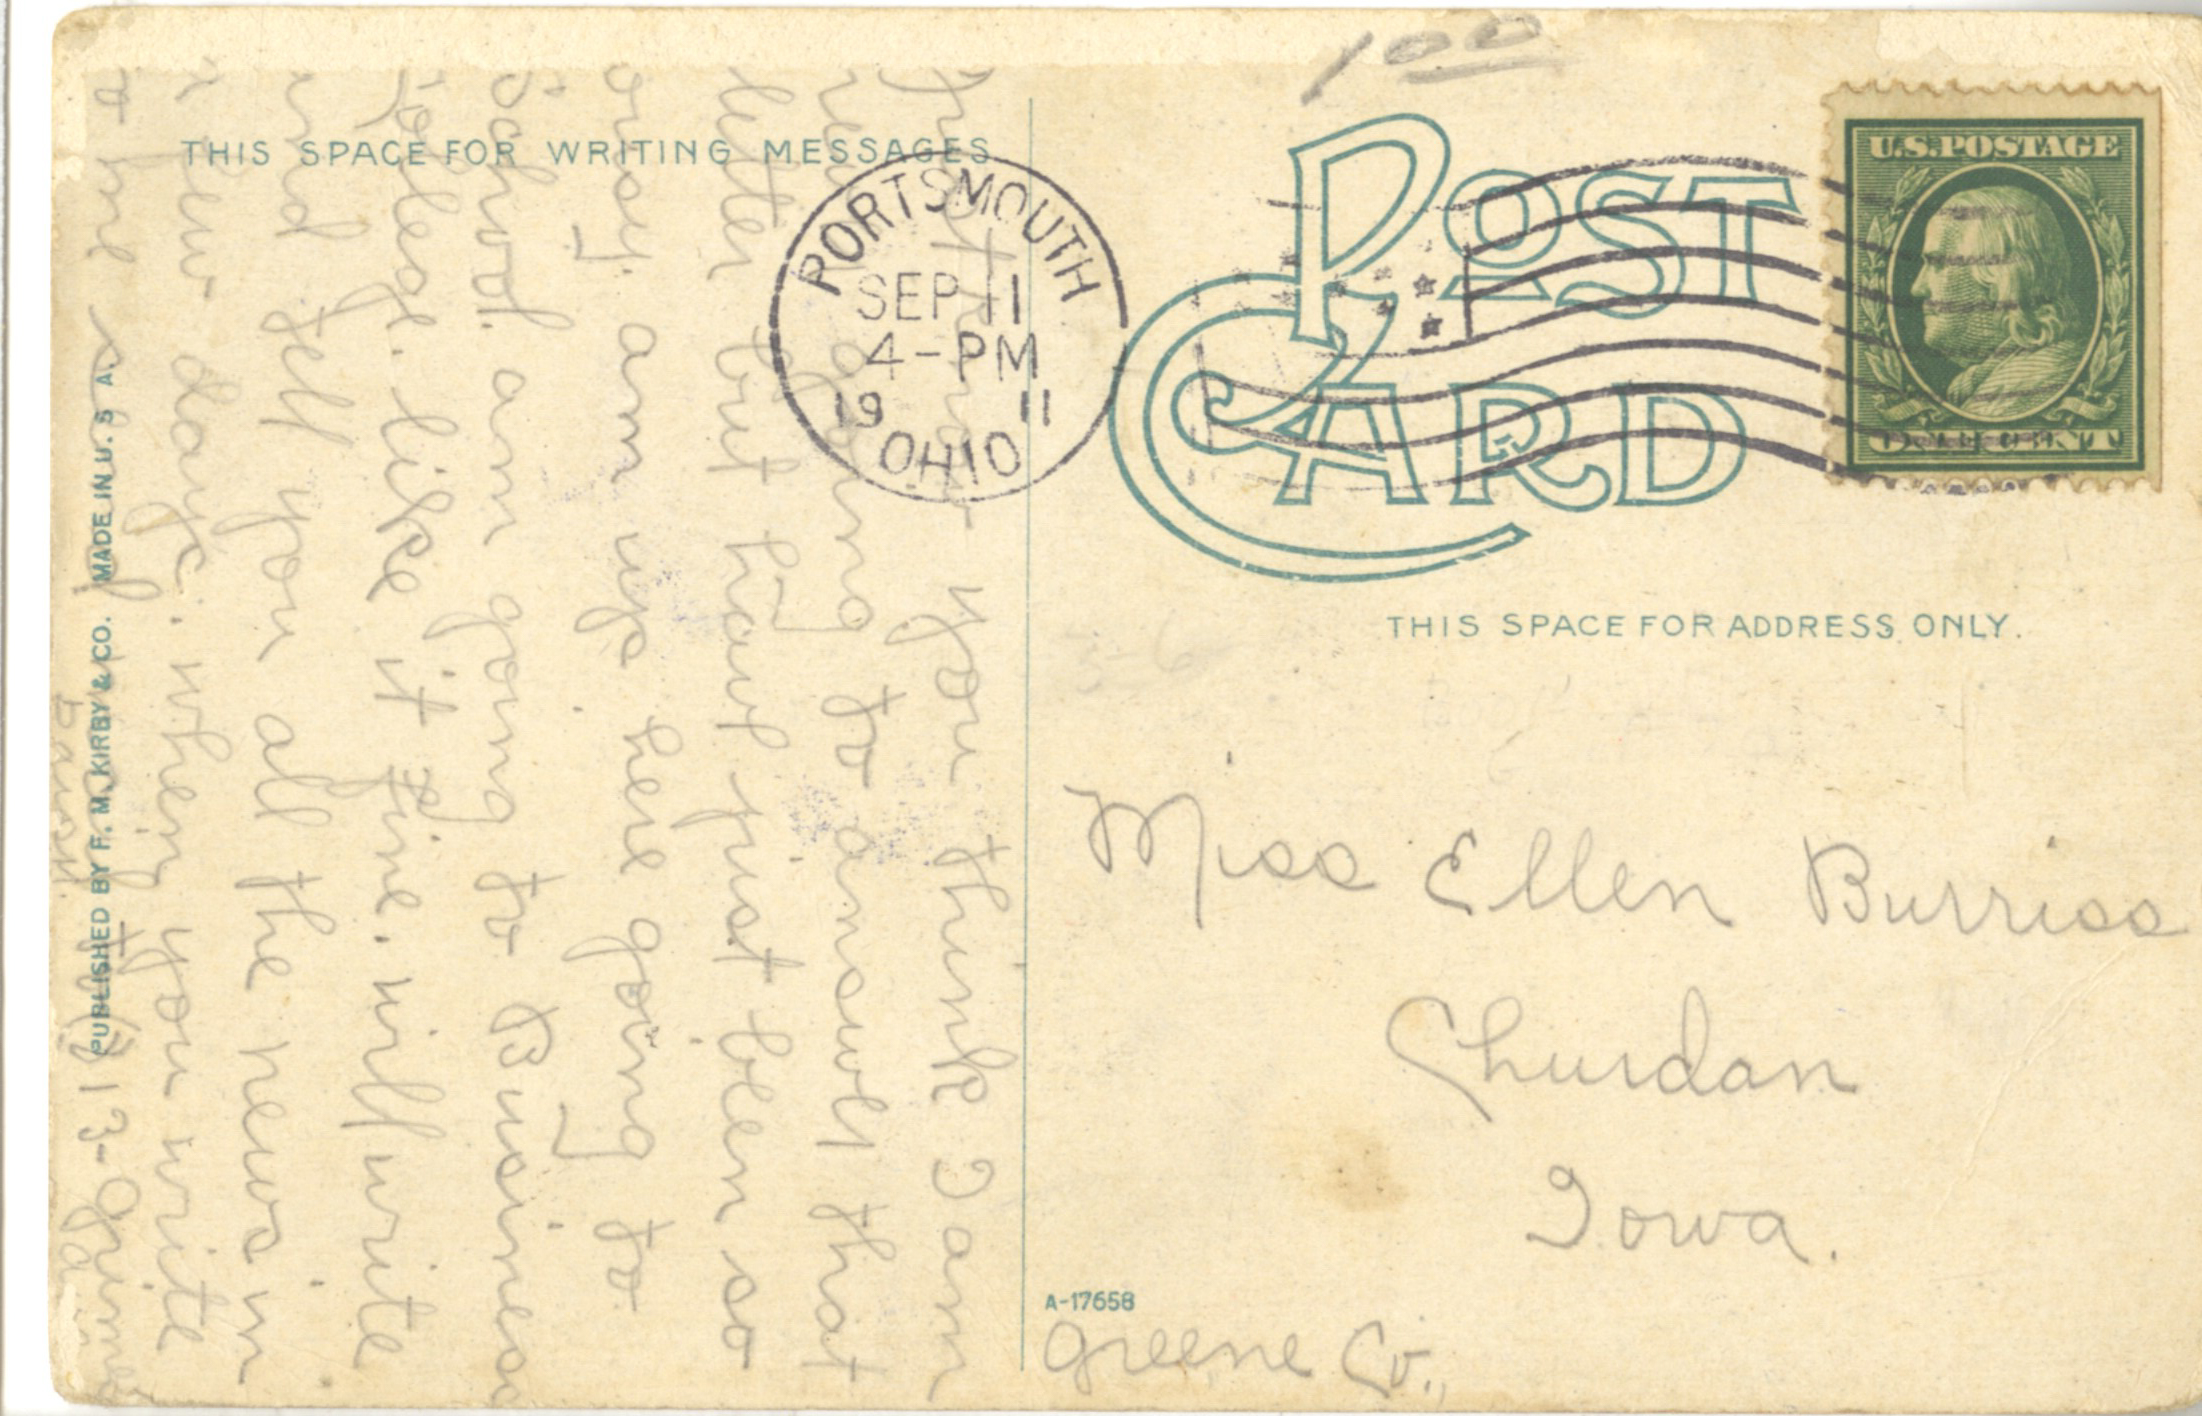 100
THIS SPACE FOR WRITING MESSAGES
POST CARD
PORTSMOUTH
SEP 11
4-PM
19 11
OHIO
U.S. POSTAGE
ONE CENT
THIS SPACE FOR ADDRESS ONLY.
Miss Ellen Burriss
Churdan
Iowa.
Greene Co.,
A-17658
PUBLISHED BY F. M. KIRBY & CO. MADE IN U. S. A.
you think I am
going to answer that
letter but have just been so
busy. am up here going to
School. am going to Business
College. like it fine. will write
and tell you all the news in
a few days. when you write
1213-